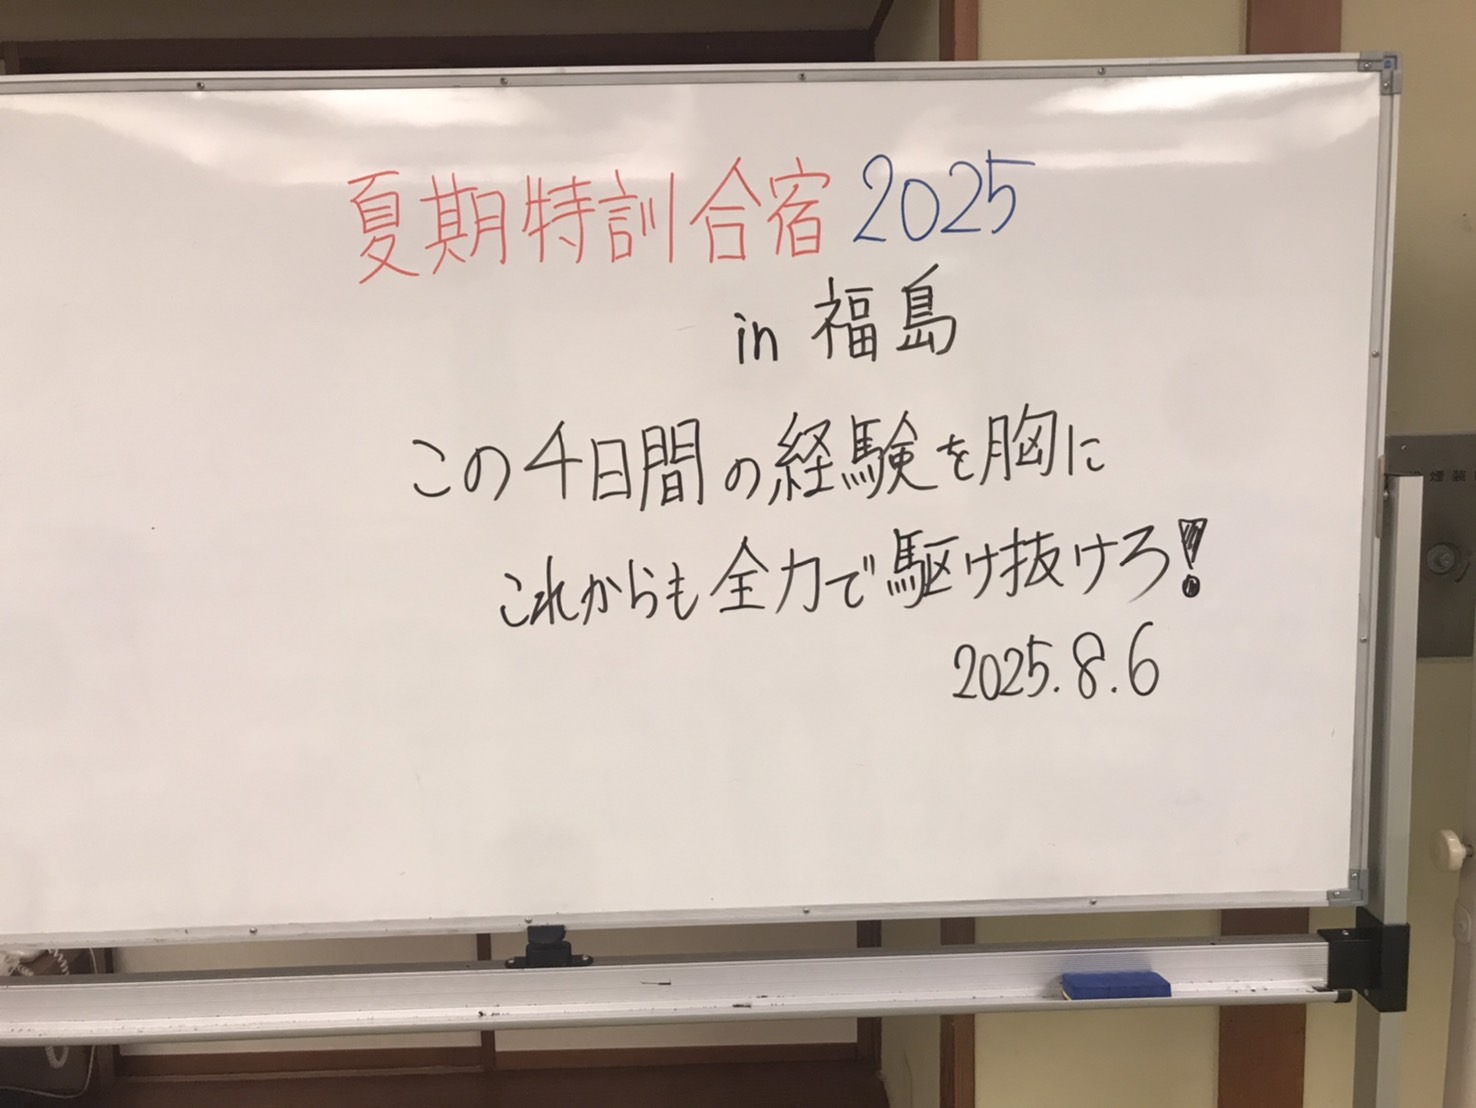 夏期特訓合宿2025
in 福島
この4日間の経験を胸に
これからも全力で駆け抜けろ!
2025.8.6